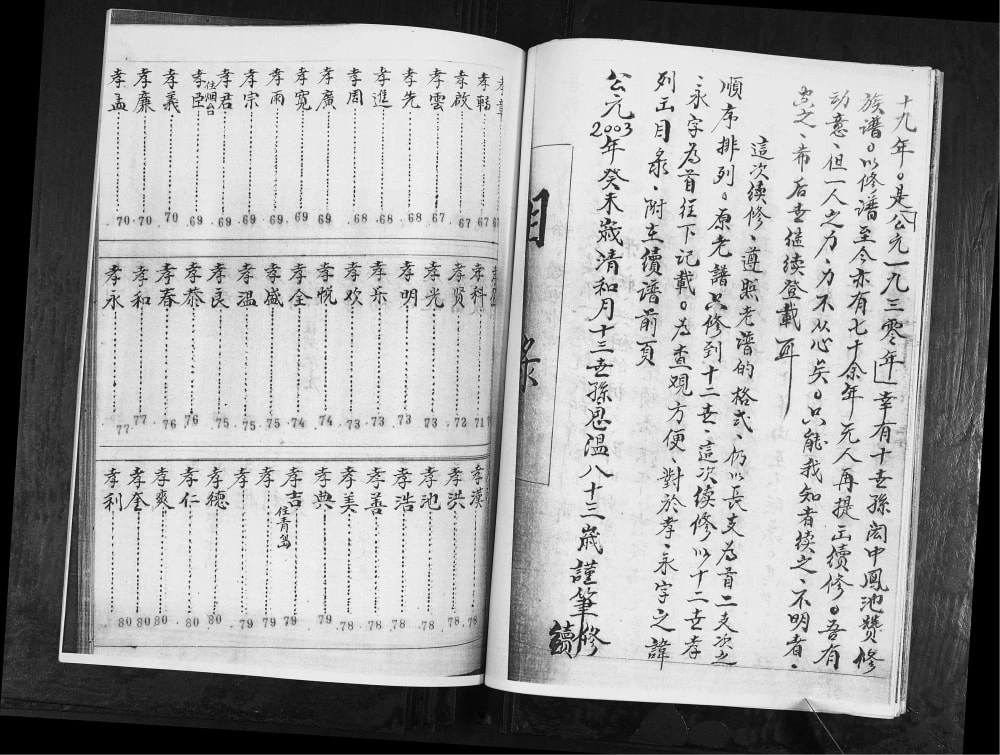 十九年。是公元一九三零年幸有十世孫宏中鳳池贊修
族谱。以修谱至今亦有七十余年无人再提出續修。吾有
动意、但一人之力、力不从心矣。只能我知者续之、不明者、
之、希后世继续登載耳
這次续修、遵照老谱的格式、仍以長支為首二支次之
順序排列。原老譜只修到十二世、這次续修以十二世孝
、永字為首往下记載。為查观方便、對於孝、永字之諱
列出目录、附在續谱前頁
公元2003年癸未歲清和月十三世孫思温八十三歲謹筆續修
目录
孝章 67
孝韜 67
孝啟 67
孝雲 67
孝先 68
孝進 68
孝周 68
孝廣 69
孝宽 69
孝雨 69
孝宗 69
孝君 69
孝臣 住烟台 69
孝義 70
孝廉 70
孝孟 70
孝科 71
孝賢 72
孝光 73
孝明 73
孝乐 73
孝欢 73
孝悦 74
孝全 74
孝盛 75
孝温 75
孝良 75
孝恭 76
孝春 76
孝和 77
孝永 77
孝漢 78
孝洪 78
孝池 78
孝浩 78
孝善 78
孝美 78
孝典 79
孝吉 住青島 79
孝 79
孝 79
孝德 80
孝仁 80
孝爽 80
孝奎 80
孝利 80